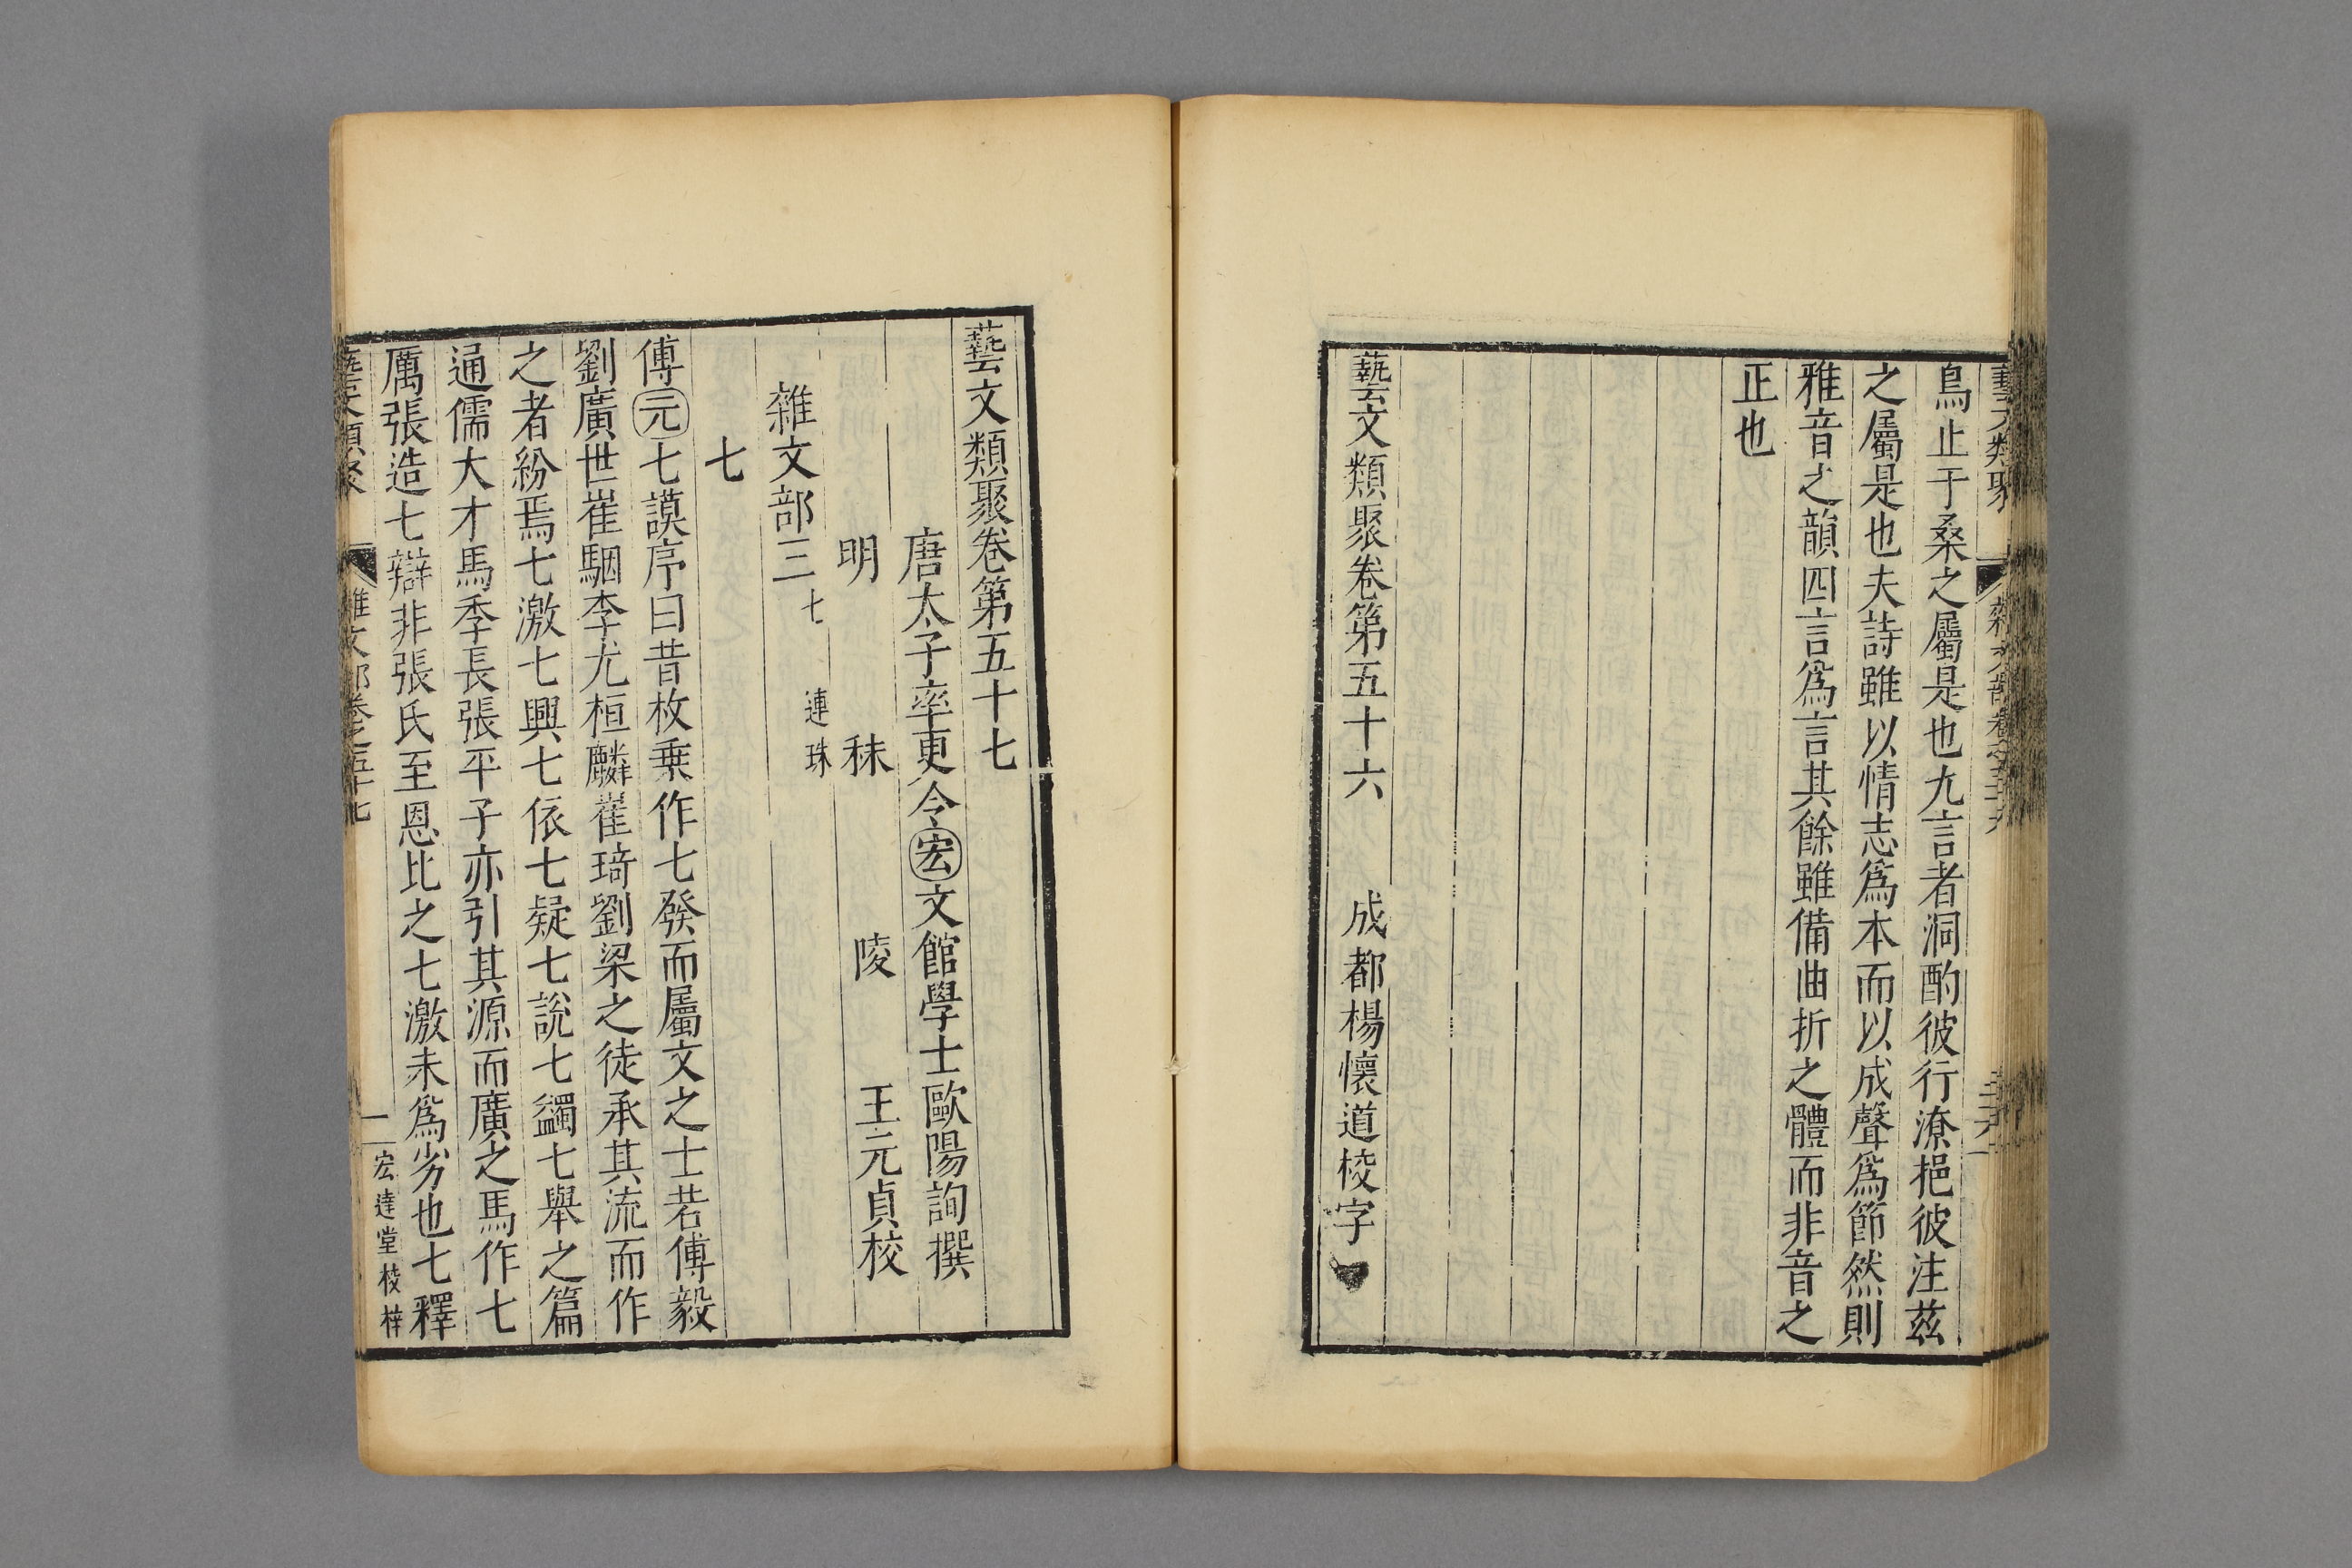 鳥止于桑之屬是也九言者洞酌彼行潦挹彼注茲
之屬是也夫詩雖以情志爲本而以成聲爲節然則
雅音之韻四言爲言其餘雖備曲折之體而非音之
正也
藝文類聚卷第五十六 成都楊懷道校字
藝文類聚卷第五十七
唐太子率更令宏文館學士歐陽詢撰
明 秣 陵 王元貞校
雜文部三 七 連珠
七
傅元七謨序曰昔枚乗作七發而屬文之士若傅毅
劉廣世崔駰李尤桓麟崔琦劉梁之徒承其流而作
之者紛焉七激七興七依七疑七說七蠲七舉之篇
通儒大才馬季長張平子亦引其源而廣之馬作七
厲張造七辯非張氏至恩比之七激未爲劣也七釋
藝文類聚 雜文部卷之五十七 一 宏達堂校梓